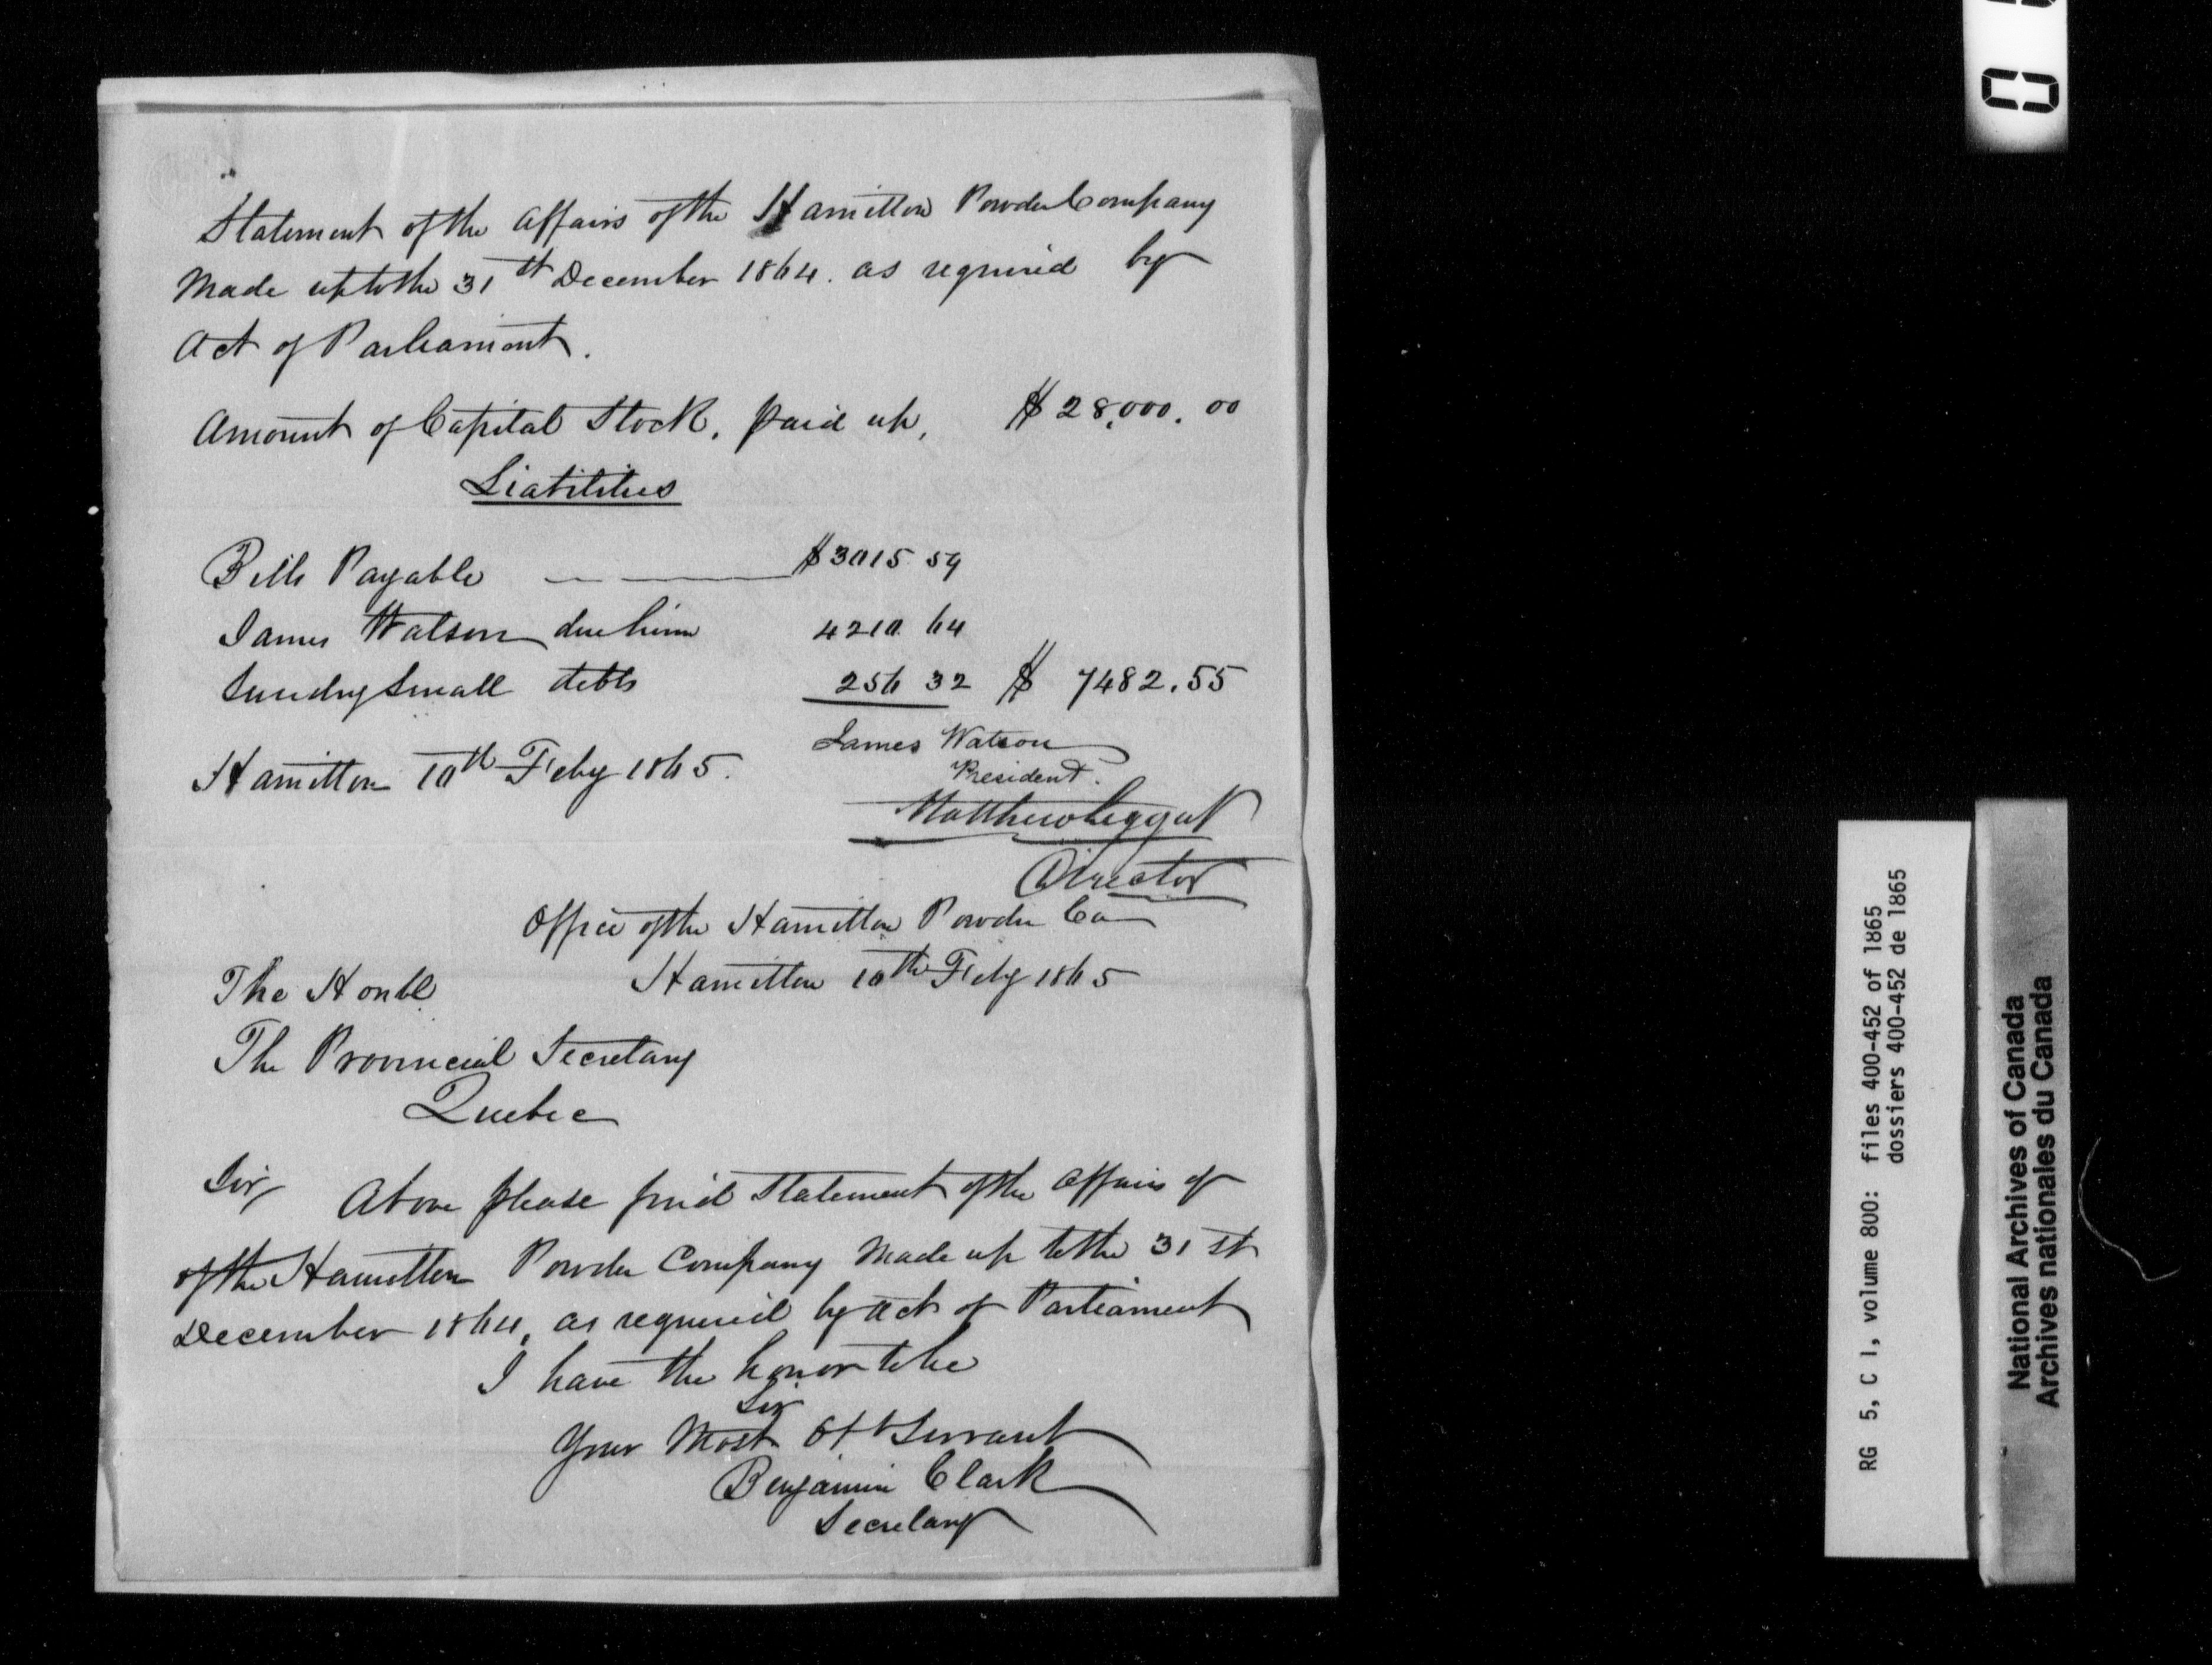 Statement of the Affairs of the Hamilton Powder Company
Made up to the 31st December 1864. as required by
Act of Parliament.
Amount of Capital Stock, paid up, $28,000.00
Liabilities
Bills Payable $3015 59
James Watson due him 4210 64
Sundry Small debts 256 32 $ 7482.55
Hamilton 10th Feby 1865.
James Watson
President.
Matthew Leggat
Director
Office of the Hamilton Powder Co
Hamilton 10th Feby 1865
The Honbl
The Provincial Secretary
Quebec
Sir, Above please find Statement of the Affairs of
of the Hamilton Powder Company Made up to the 31st
December 1864, as required by Act of Parliament
I have the honor to be
Sir
Your Most Obt Servant
Benjamin Clark
Secretary
RG 5, C 1, volume 800: files 400-452 of 1865
dossiers 400-452 de 1865
National Archives of Canada
Archives nationales du Canada